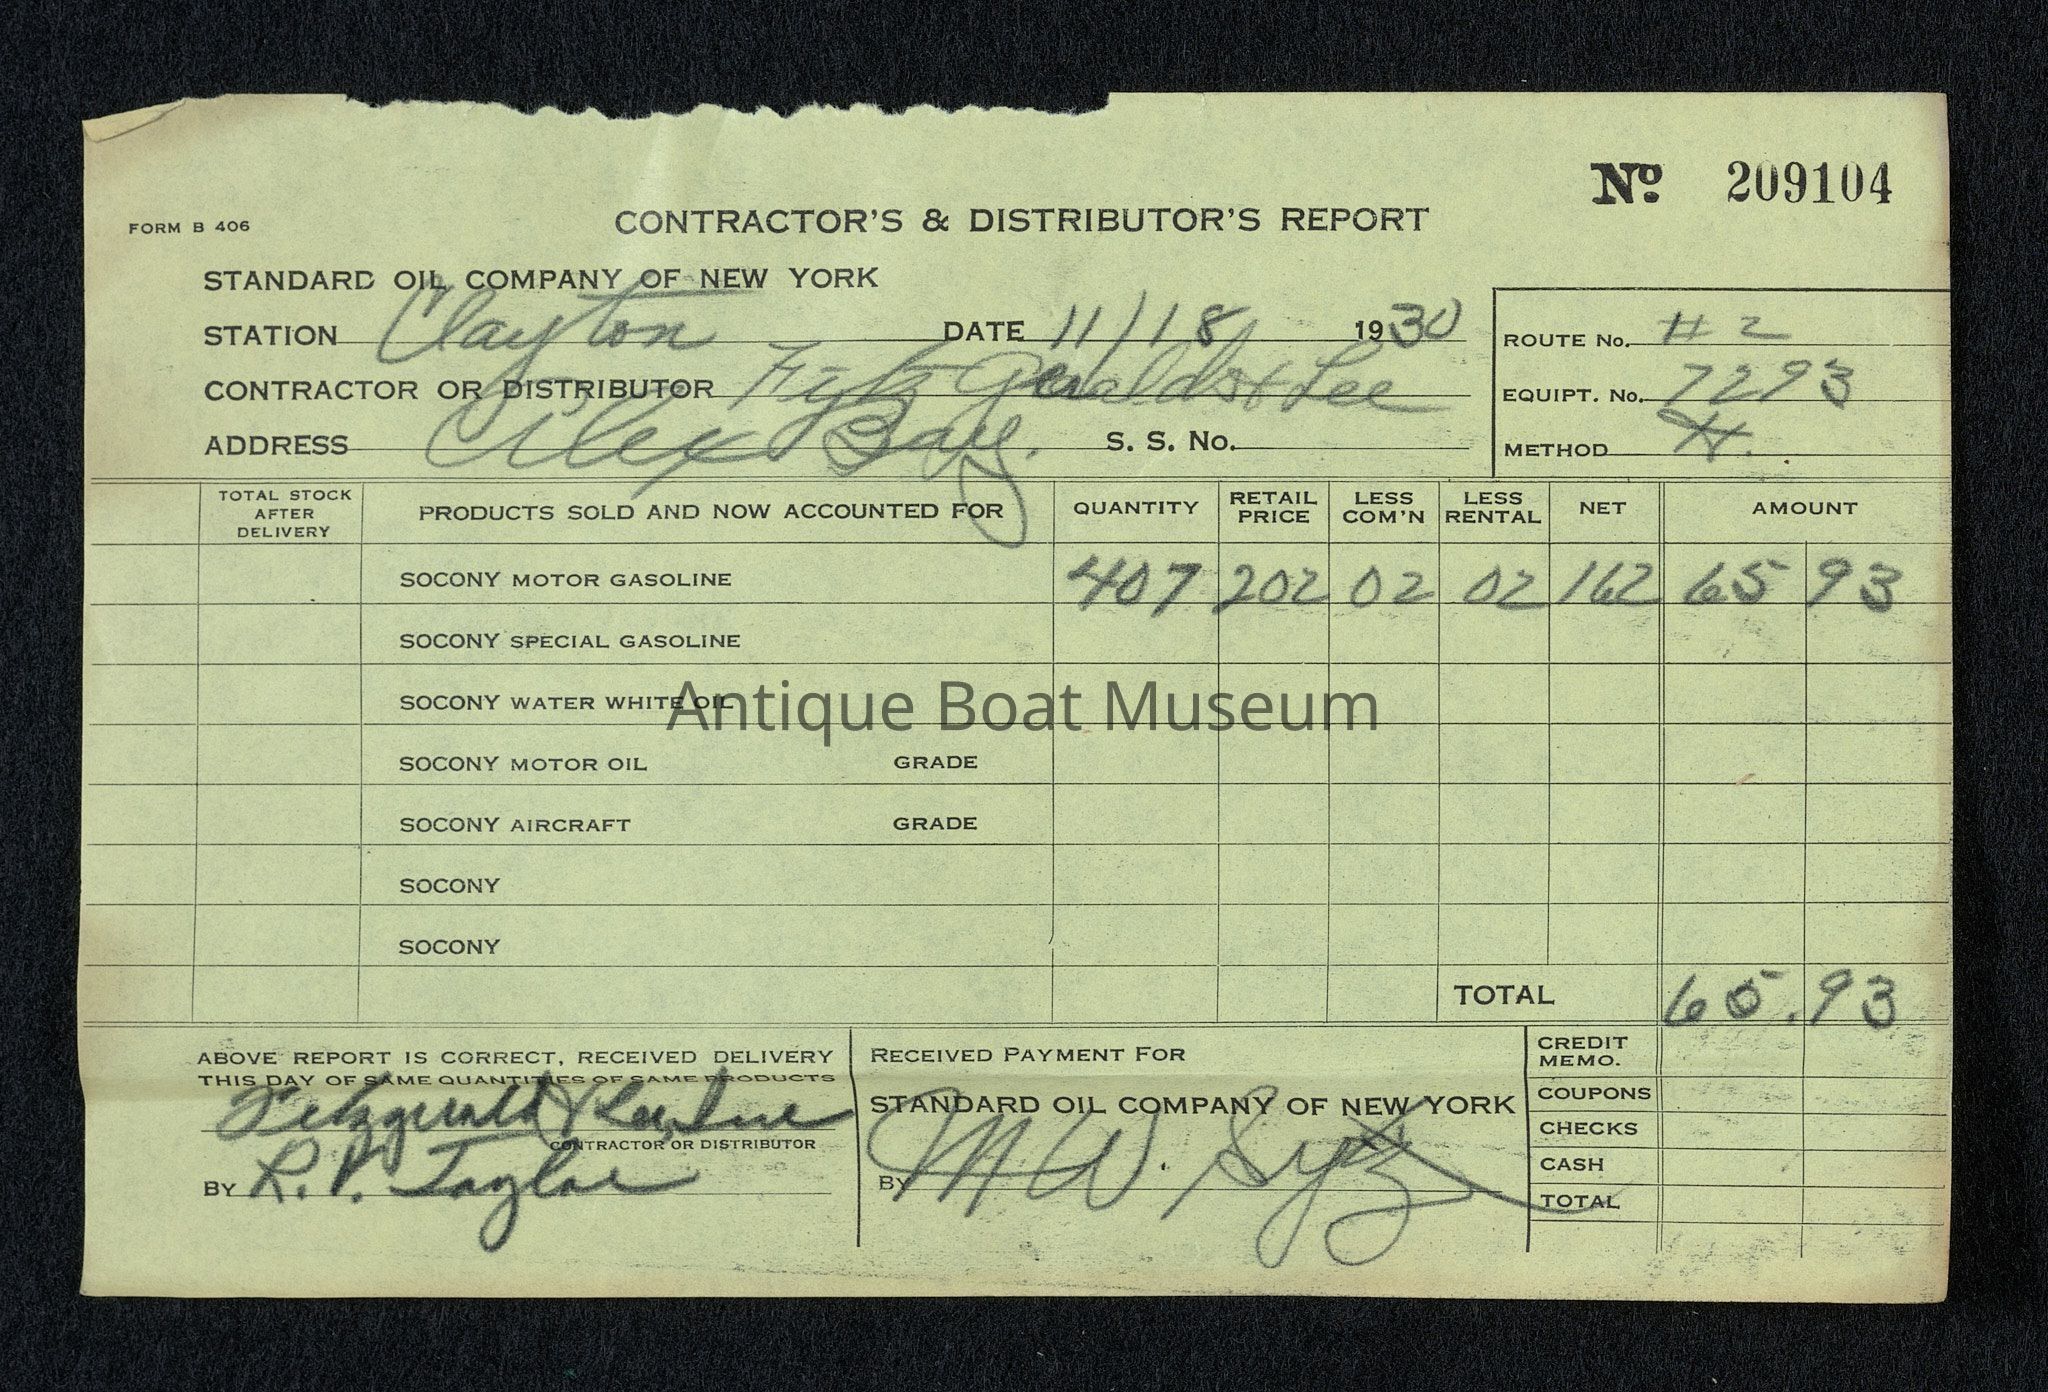 Nº 209104
FORM B 406
CONTRACTOR'S & DISTRIBUTOR'S REPORT
STANDARD OIL COMPANY OF NEW YORK
STATION Clayton DATE 11/18 1930
ROUTE No. #2
CONTRACTOR OR DISTRIBUTOR Fitz Geralds & Lee
EQUIPT. No. 7293
ADDRESS Alex Bay. S. S. No.
METHOD H.
TOTAL STOCK AFTER DELIVERY PRODUCTS SOLD AND NOW ACCOUNTED FOR QUANTITY RETAIL PRICE LESS COM'N LESS RENTAL NET AMOUNT
SOCONY MOTOR GASOLINE 407 202 02 02 162 65 93
SOCONY SPECIAL GASOLINE
SOCONY WATER WHITE OIL
Antique Boat Museum
SOCONY MOTOR OIL GRADE
SOCONY AIRCRAFT GRADE
SOCONY
SOCONY
TOTAL 65.93
ABOVE REPORT IS CORRECT, RECEIVED DELIVERY
THIS DAY OF SAME QUANTITIES OF SAME PRODUCTS
Fitzgerald & Lee Inc
CONTRACTOR OR DISTRIBUTOR
BY R. P. Taylor
RECEIVED PAYMENT FOR
STANDARD OIL COMPANY OF NEW YORK
BY M W.
CREDIT MEMO.
COUPONS
CHECKS
CASH
TOTAL